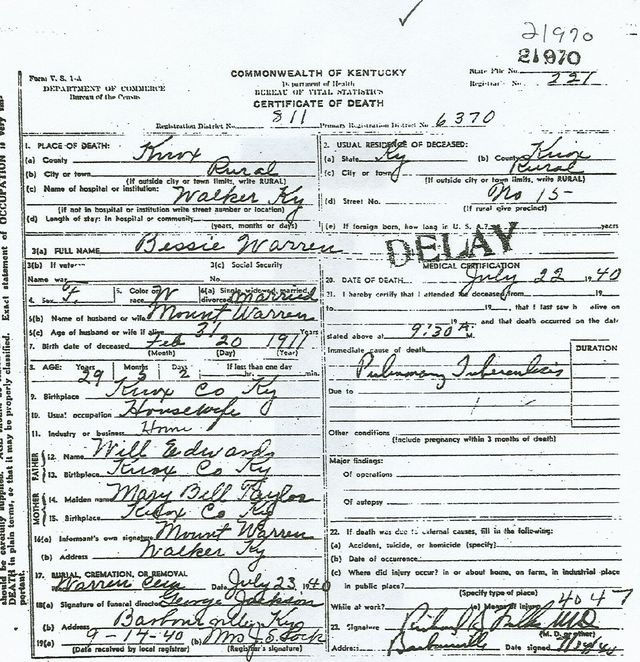 21970
21970
Form V. S. 1-A
DEPARTMENT OF COMMERCE
Bureau of the Census
COMMONWEALTH OF KENTUCKY
Department of Health
BUREAU OF VITAL STATISTICS
CERTIFICATE OF DEATH
State File No.
Registrar's No. 221
Registration District No. 811 Primary Registration District No. 6370
1. PLACE OF DEATH:
(a) County Knox
(b) City or town Rural
(If outside city or town limits, write RURAL)
(c) Name of hospital or institution:
Walker Ky
(If not in hospital or institution write street number or location)
(d) Length of stay: In hospital or community
(years, months or days)
2. USUAL RESIDENCE OF DECEASED:
(a) State Ky (b) County Knox
(c) City or town Rural
(If outside city or town limits, write RURAL)
(d) Street No. No 15
(If rural give precinct)
(e) If foreign born, how long in U. S. A.? years
3(a) FULL NAME Bessie Warren
DELAY
3(b) If veteran
Name war
3(c) Social Security
No.
4. Sex F. 5. Color or race W 6(a) Single, widowed, married, divorced Married
6(b) Name of husband or wife Mount Warren
6(c) Age of husband or wife if alive 31 Years
7. Birth date of deceased Feb 20 1911
(Month) (Day) (Year)
8. AGE: Years Months Days If less than one day
29 5 2 hr. min.
9. Birthplace Knox Co Ky
10. Usual occupation Housewife
11. Industry or business Home
FATHER
12. Name Will Edwards
13. Birthplace Knox Co Ky
MOTHER
14. Maiden name Mary Bell Taylor
15. Birthplace Knox Co Ky
16(a) Informant's own signature Mount Warren
(b) Address Walker Ky
17. BURIAL, CREMATION, OR REMOVAL
Warren Cem Date July 23 1940
18(a) Signature of funeral director George Jackson
(b) Address Barbourville Ky
19(a) 9-14-40 (b) Mrs J.S. Lock
(Date received by local registrar) (Registrar's signature)
MEDICAL CERTIFICATION
20. DATE OF DEATH July 22 1940
21. I hereby certify that I attended the deceased from 19
to 19 , that I last saw h alive on
19 and that death occurred on the date
stated above at 9:30 A. m.
Immediate cause of death DURATION
Pulmonary Tuberculosis
Due to
Other conditions
(Include pregnancy within 3 months of death)
Major findings:
Of operations
Of autopsy
22. If death was due to external causes, fill in the following:
(a) Accident, suicide, or homicide (specify)
(b) Date of occurrence
(c) Where did injury occur? in or about home, on farm, in industrial place
in public place?
(Specify type of place)
While at work? (e) Means of injury 4047
23. Signature MD
(M. D. or other)
Address Barbourville Date signed
should be carefully supplied.
DEATH in plain terms, so that it may be properly classified. Exact statement of OCCUPATION is very important.